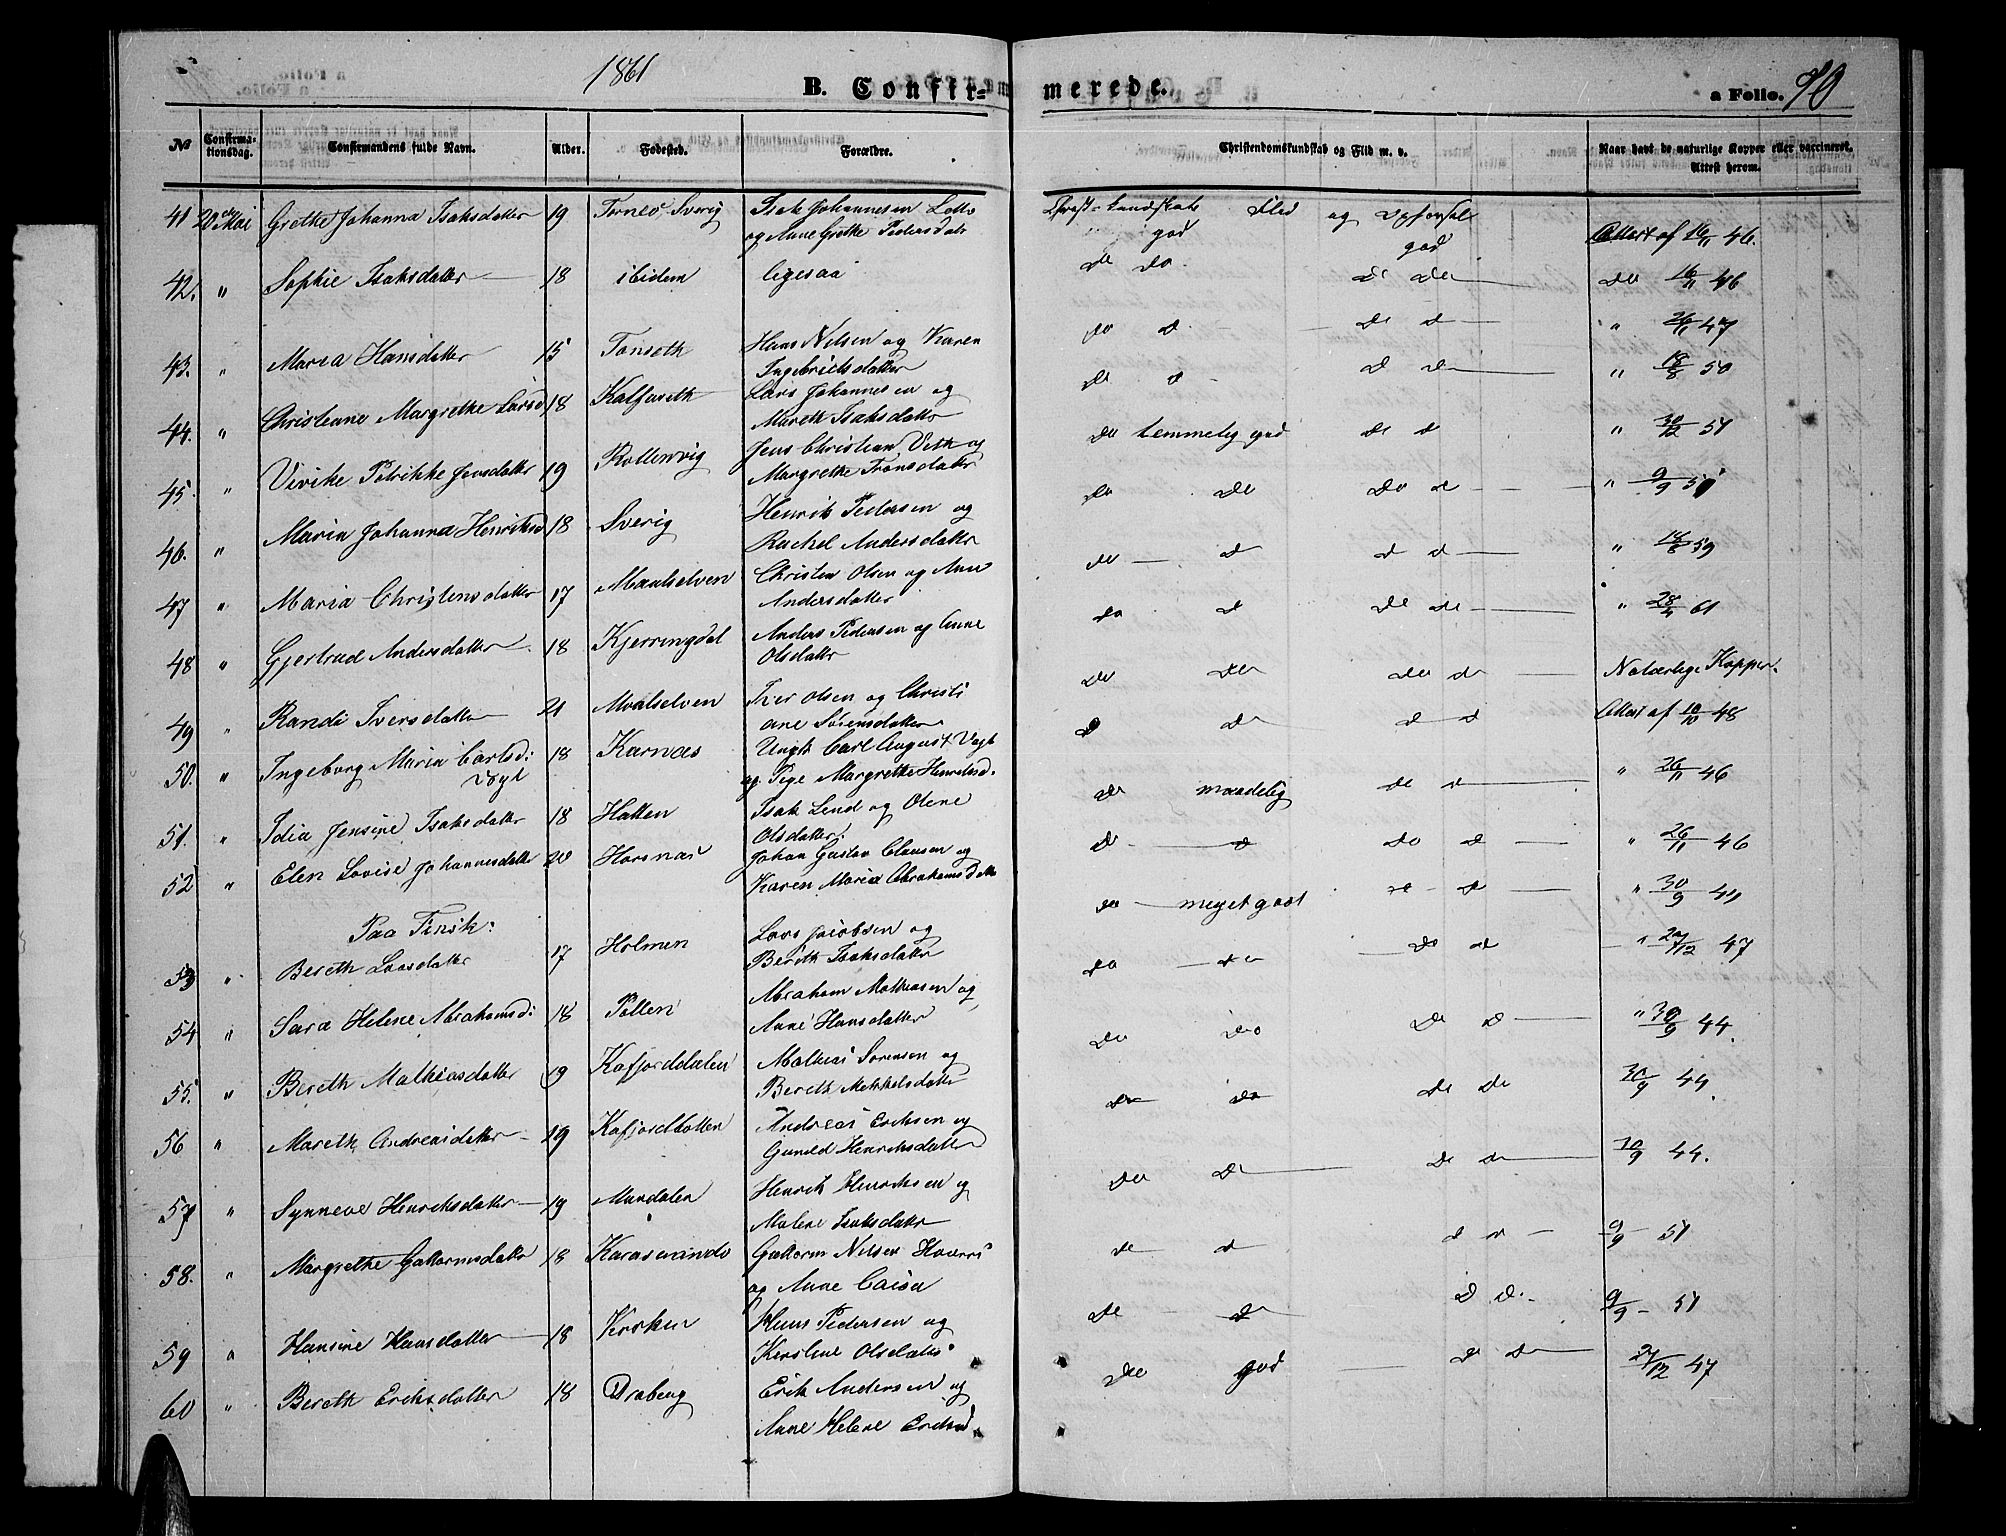 1861
B. Confir= merede. a Folio. 70
№ Confirma= tionsdag. Confirmandens fulde Navn. Alder. Fødested. Forældre. Christendomskundskab og Flid m. v. Naar havt de naturlige Kopper eller vaccineret. Attest herom.
41 20de Mai Grethe Johanna Isaksdatter 19 Torneo Sverig Isak Johannesen og Anne Grethe Pedersdatr god Flid og god Attest af 16/11 46.
42. " Sophie Isaksdatter 18 ibidem ligesaa do do do do do 16/11 46
43. " Maria Hansdatter 15 Tonseth Hans Nilsen og Karen Ingebrietsdatter do d do d " 26/1 47
44. " Christiane Margrethe Larsd 18 Lars Johannesen og Mareth Isaksdatter do d d do " 18/8 50
45. " Vivike Petrikke Jensdatter 19 Rottenvig Jens Christian Veth og Margrethe Tronsdatter do temmelig god do d " 30/12 51
46. " Maria Johanna Henriksd 18 Sverig Henrik Pedersen og Rachel Andersdatter do do do d " 9/9 51
47 " Maria Christensdatter 17 Maalselven Christen Olsen og Ane Andersdatter do d d d " 18/8 59
48 " Gjertrud Andersdatter 18 Kjerringdal Anders Pedersen og Anne Olsdatter do d do do " 28/4 61
49 " Randi Iversdatter 21 Maalselven Iver Olsen og Christiane Sörensdatter do do do d Naturlige Kopper.
50. " Ingeborg Maria Carlsd: Vogt 18 Karnæs Ungk Carl August Vogt og Pige Margrethe Henriksd. d do d d Attest af 10/10 48
51. " Idia Jensine Isaksdatter 18 Hatten Isak Lend og Olene Olsdatter. do maadelig do d " 26/11 46
52 " Elen Lovise Johannesdatter 20 Horsnæs Johan Gustav Clausen og Karen Maria Abrahamsdatter d d do d " 26/11 46
Paa Finsk:
53 " Bereth Larsdatter 17 Holmen Lars Jacobsen og Bereth Isaksdatter do meget godt do d " 30/9 44
54 " Sara Helene Abrahamsd: 18 Pollen Abraham Mathiasen og Ane Hansdatter do do do d " 27/12 47
55. " Bereth Mathiasdatter 19 Kafjorddalen Mathias Sorensen og Bereth Mikkelsdatter do do do d " 30/9 44.
56 " Mareth Andreasdatter 19 Kafjordbotten Andreas Eriksen og Gunild Henriksdatter do do do do 30/9 44.
57 " Synneve Henriksdatter 19 Mandalen Henrik Henriksen og Malene Isaksdatter do do do do 30/9 44.
58. " Margrethe Guttormsdatter 18 Guttorm Nilsen og Anne Caisa do d d d 9/9 - 51
59 " Hansine Hansdatter 18 Hans Pedersen og Kirstine Olsdatter do d d d. 9/9 - 51
60 " Bereth Eriksdatter 18 Erik Andersen og Anne Helene do god d do 27/12 47